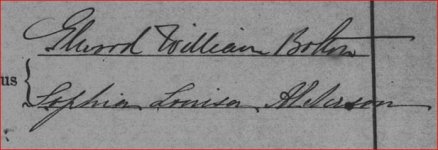 Edward William Bolton
us
Sophia Louisa Alderson